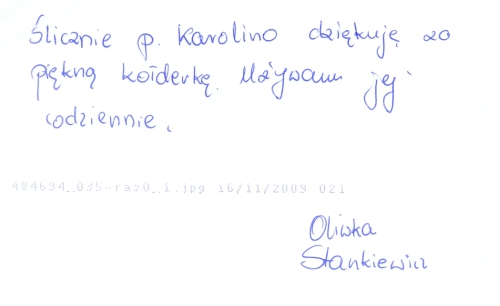 Ślicznie p. Karolino dziękuję za
piękną kołderkę. Używam jej
codziennie.
484694_035-raz0_1.jpg 16/11/2009 021
Oliwka
Stankiewicz